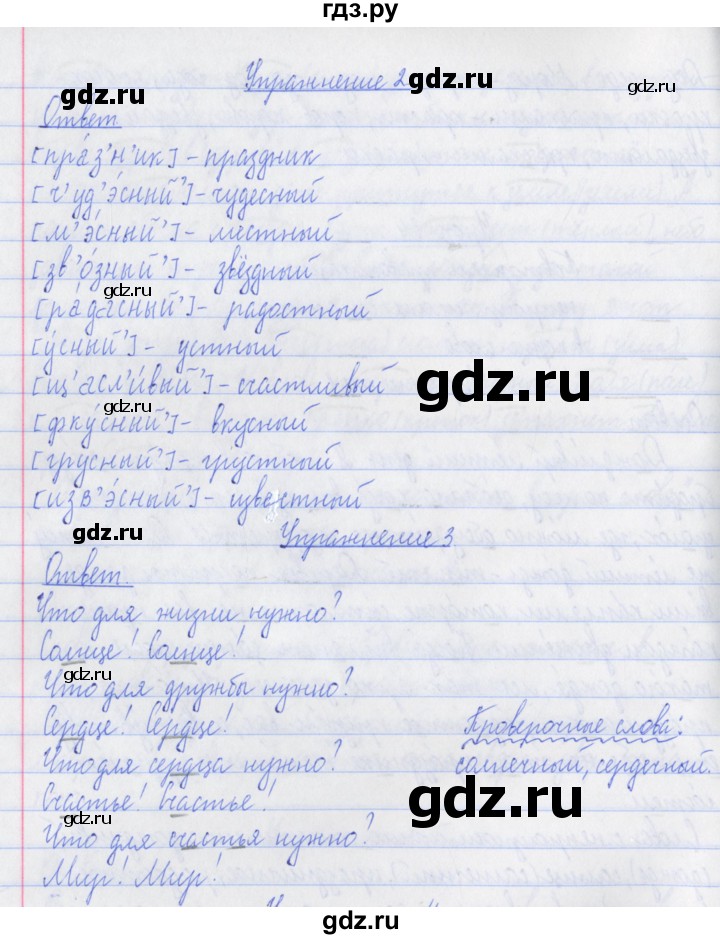 гдз.ру
Упражнение 2
gdz.ru
gdz.ru
gdz.ru
Ответ
[пра́з'н'ик] - праздник
[ч'уд'э́сный'] - чудесный
[м'э́сный'] - местный
[зв'о́зный'] - звёздный
gdz.ru
[ра́дасный'] - радостный
[у́сный'] - устный
[щ'асл'и́вый'] - счастливый
gdz.ru
gdz.ru
[фку́сный'] - вкусный
[грусный'] - грустный
[изв'э́сный'] - известный
gdz.ru
Упражнение 3
Ответ.
Что для жизни нужно?
Солнце! Солнце!
gdz.ru
Что для дружбы нужно?
Сердце! Сердце!
Проверочные слова:
Что для сердца нужно?
солнечный, сердечный.
Счастье! Счастье!
gdz.ru
gdz.ru
Что для счастья нужно?
Мир! Мир!
gdz.ru